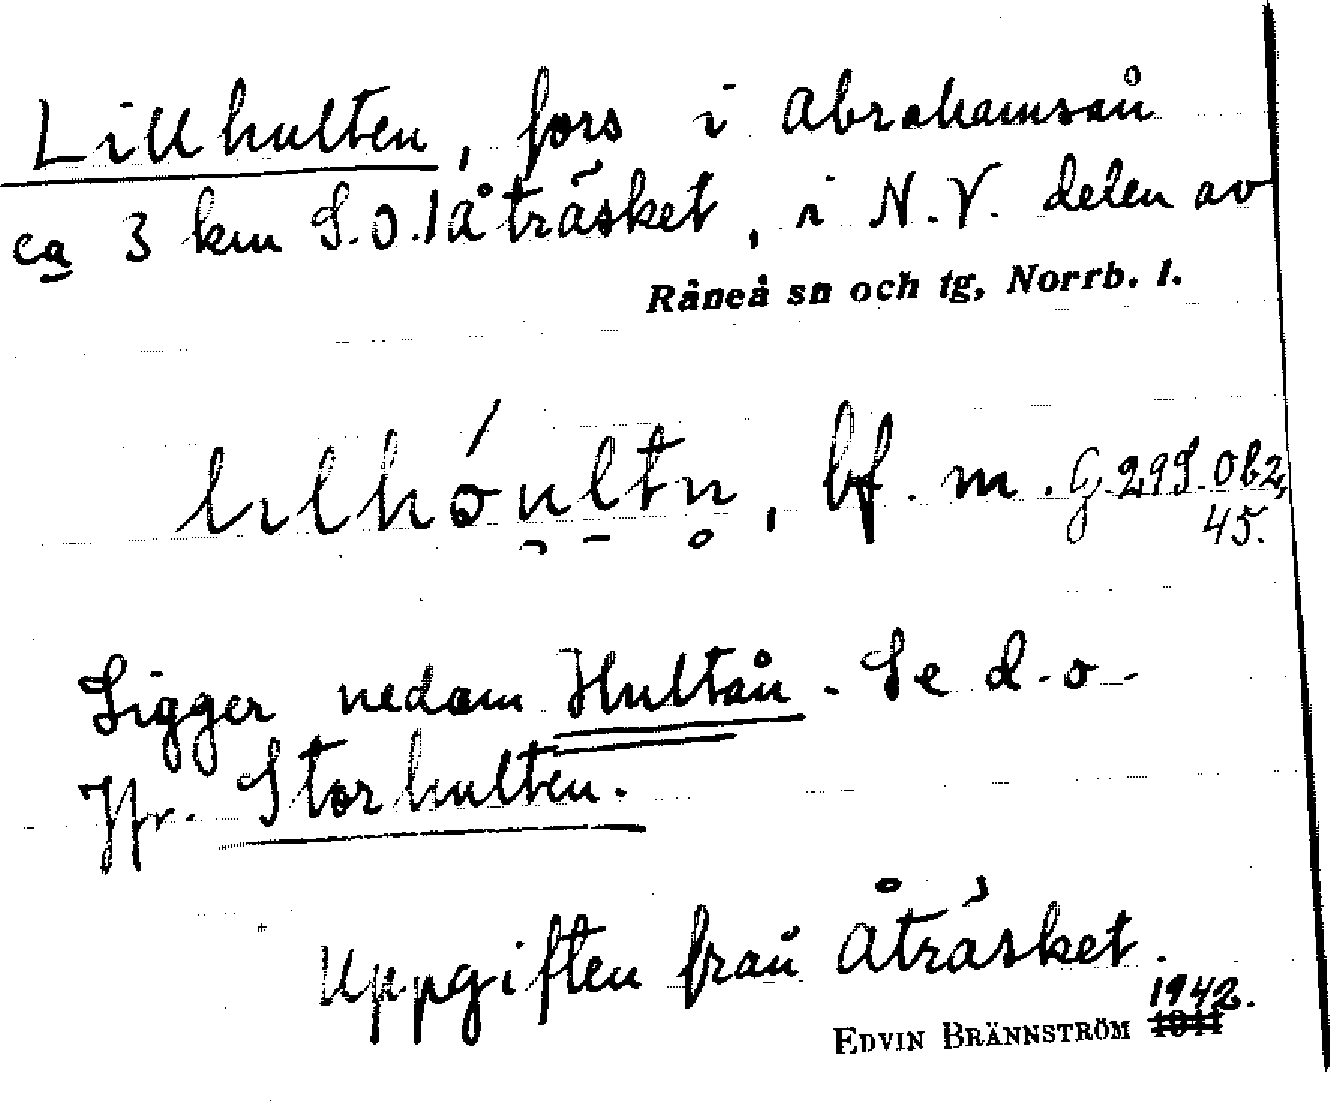 Lillhulten, fors i Abrahamsån
ca 3 km S.O. Åträsket, i N.V. delen av
Råneå sn och tg, Norrb. l.
bf. m. G 299. Ob2,
45.
Ligger nedom Hultån. Se d.o.
Jfr. Storhulten.
Uppgiften från Åträsket.
1942.
EDVIN BRÄNNSTRÖM 1941